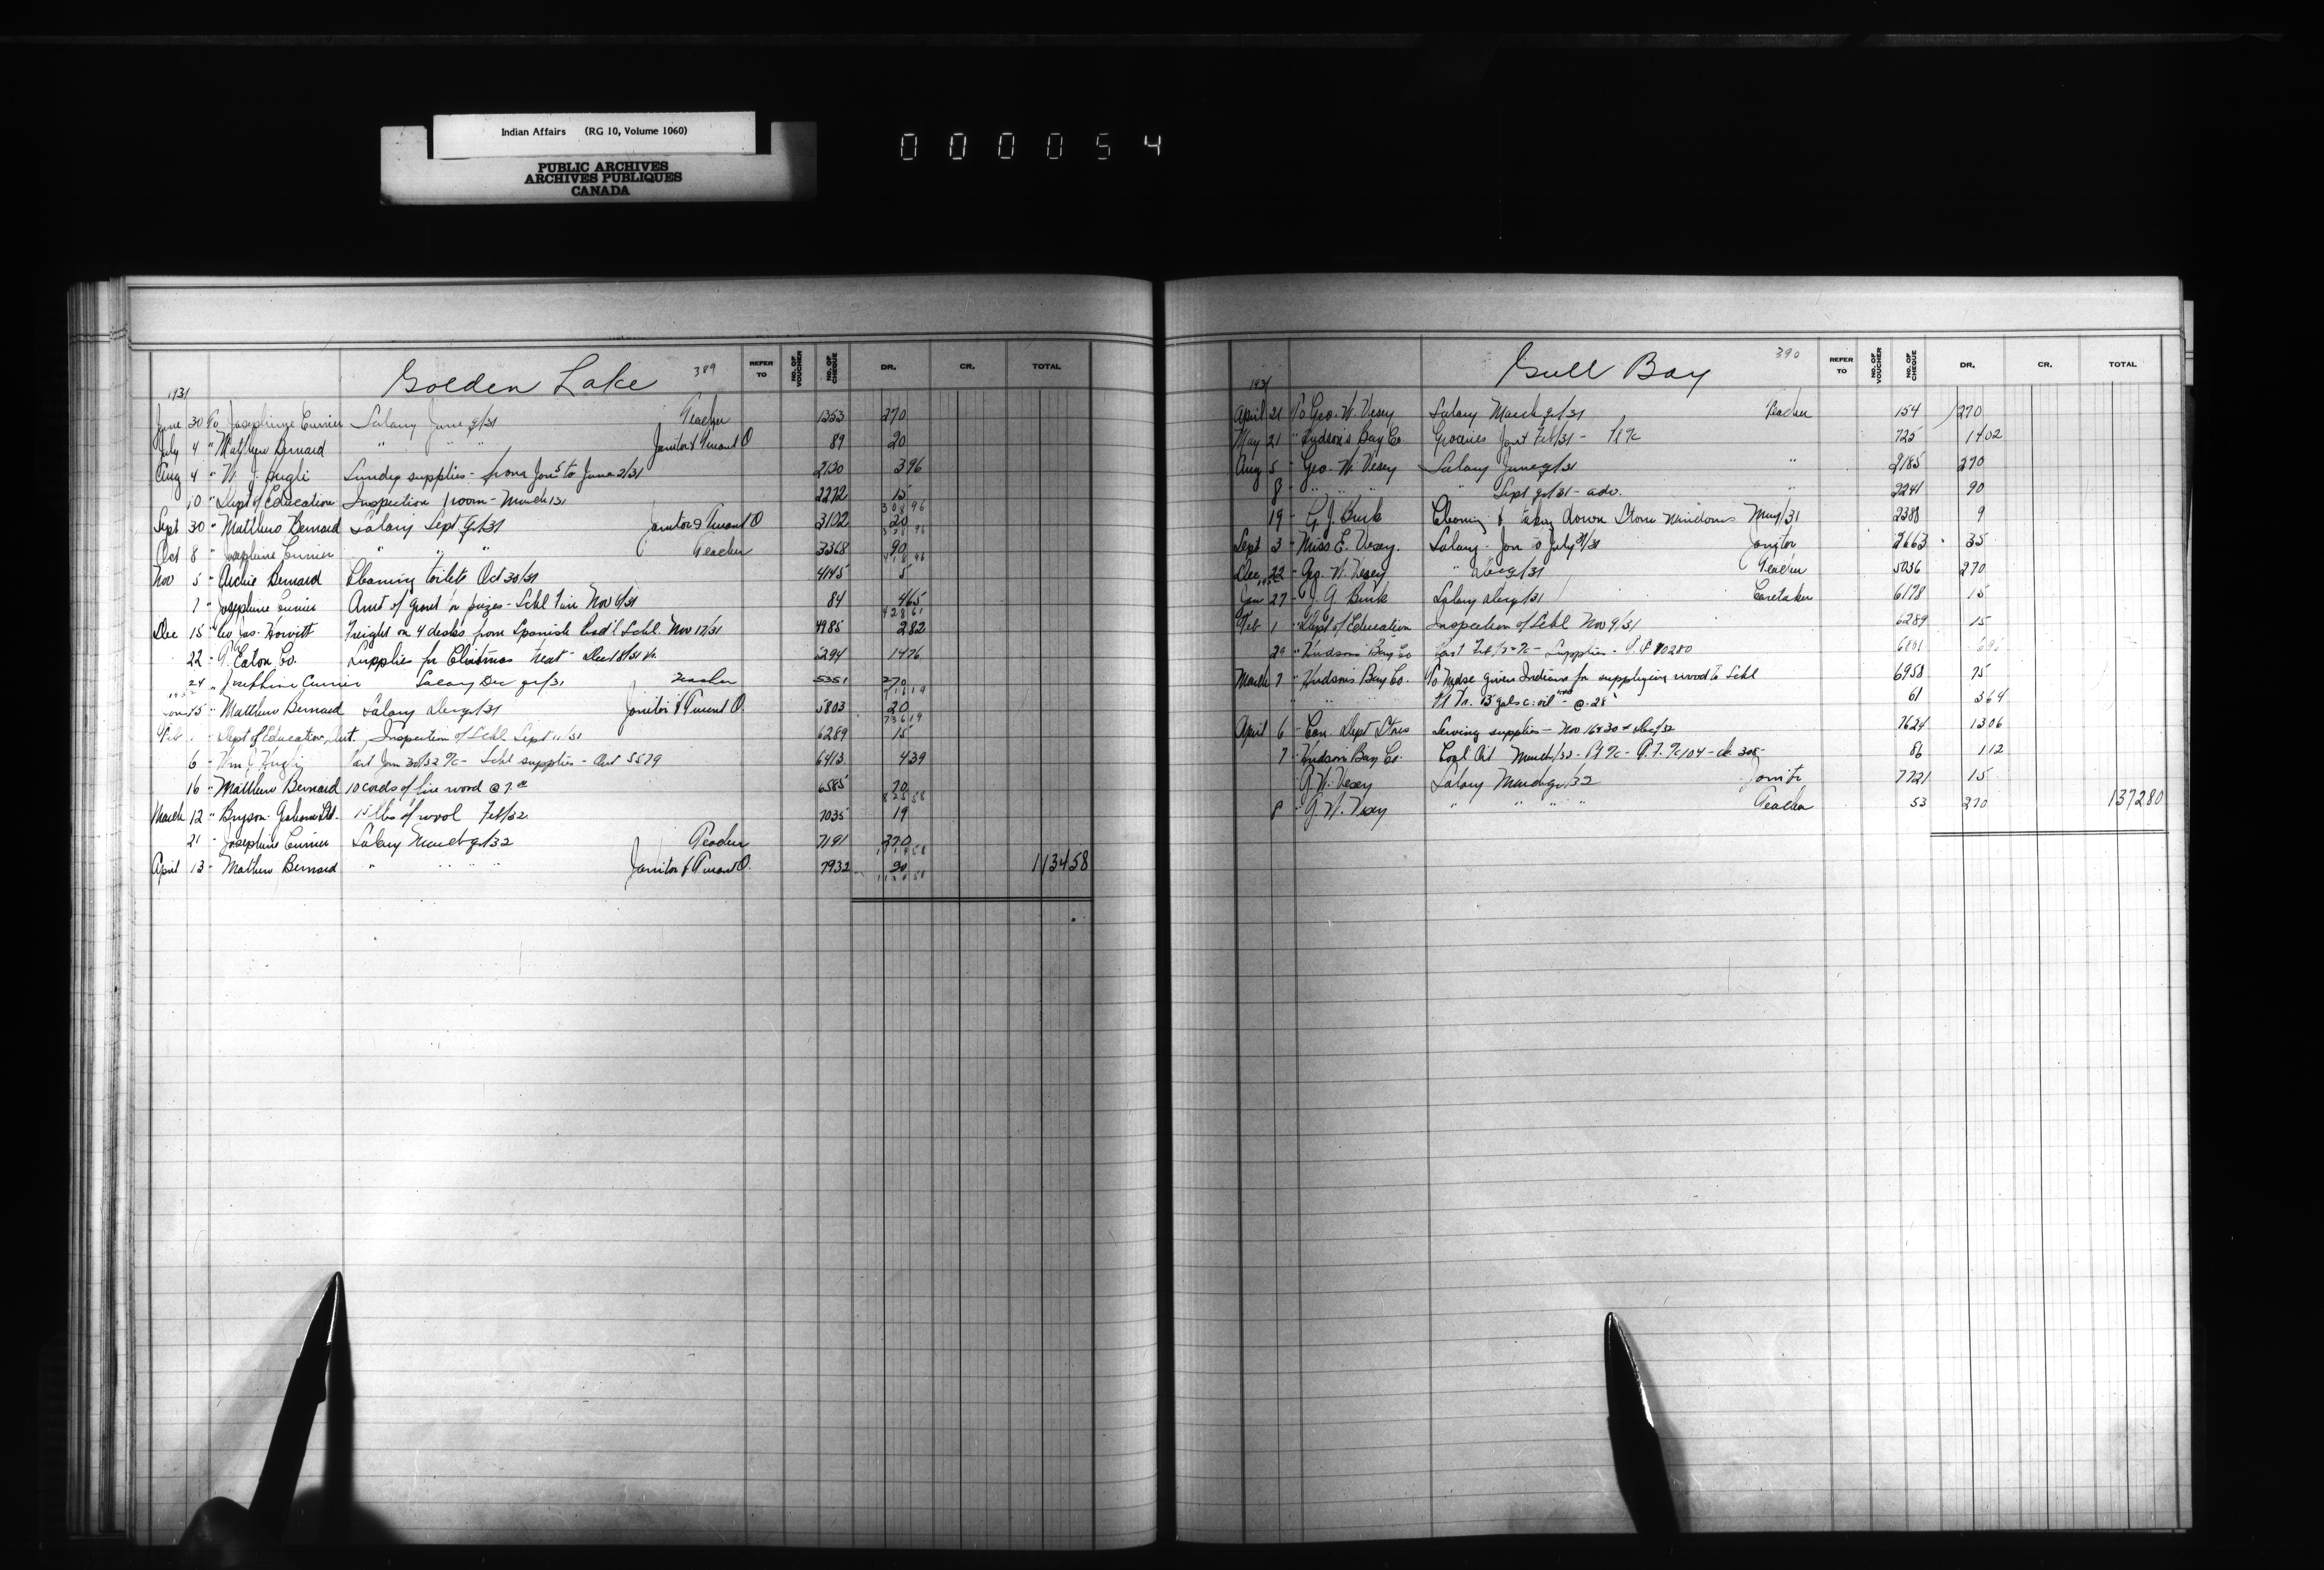 Indian Affairs (RG 10, Volume 1060)
PUBLIC ARCHIVES
ARCHIVES PUBLIQUES
CANADA
000054
Golden Lake 389 REFER TO NO. OF VOUCHER NO. OF CHEQUE DR. CR. TOTAL
1931
June 30 To Josephine Currier Salary June qr/31 Teacher 1353 270
July 4 " Matthew Bernard " " " Janitor & Truant O 89 20
Aug 4 " W. J. Hugli Sundry supplies - from Jan 5 to June 2/31 2130 396
10 " Dept of Education Inspection room - March/31 2272 15
308 96
Sept 30 - Matthew Bernard Salary Sept qr/31 Janitor & Truant O 3102 20
328 96
Oct 8 - Josephine Currier " " " Teacher 3368 90
418 96
Nov 5 - Archie Bernard Cleaning toilets Oct 30/31 4145 5
7 - Josephine Currier Amt of grant for prizes - Schl Fair Nov 6/31 84 465
428 61
Dec 15 " Jas. Howitt Freight on 4 desks from Spanish Ind'l Schl. Nov 17/31 4985 282
22 - T. Eaton Co. Supplies for Christmas treat - Dec 18/31 5294 1476
24 " Josephine Currier Salary Dec qr/31 Teacher 5351 270
716 19
1932
Jan 15 - Matthew Bernard Salary Dec qr/31 Janitor & Truant O. 5803 20
736 19
Feb 1 - Dept of Education, Ont. Inspection of Schl Sept 11/31 6289 15
6 - Wm J. Hugli Part Jan 30/32 a/c - Schl supplies - 5579 6413 439
16 - Matthew Bernard 10 cords of fire wood @ 7.00 6585 70
825 58
March 12 " Bryson Graham Ltd. 15 lbs of wool Feb/32 7035 19
21 - Josephine Currier Salary March qr/32 Teacher 7191 270
April 13 - Mathew Bernard " " " " Janitor & Truant O. 7932 20 113458
Gull Bay 390 REFER TO NO. OF VOUCHER NO. OF CHEQUE DR. CR. TOTAL
1931
April 21 To Geo. W. Vesey Salary March qr/31 Teacher 154 270
May 21 " Hudson's Bay Co Groceries Jan & Feb/31 - 725 1402
Aug 5 - Geo. W. Vesey Salary June qr/31 " 2185 270
8 - " " " " Sept qr/31 - adv. " 2241 90
19 - G. J. Burk Cleaning & taking down Storm Windows May/31 2388 9
Sept 3 - Miss E. Vesey. Salary - Jan to July 31/31 Janitor 2663 35
Dec 22 - Geo. W. Vesey " Dec qr/31 Teacher 5036 270
1932
Jan 27 - J. G. Burk Salary Dec qr/31 Caretaker 6178 15
Feb 1 - Dept of Education Inspection of Schl Nov 9/31 6289 15
29 " Hudsons Bay Co Part Feb/32 a/c - Supplies - 80280
March 7 " Hudson's Bay Co. To Mdse given Indians for supplying wood to Schl 6958 75
" " 13 gals c. oil @ .28 61 364
April 6 - Can. Dept Stores Sewing supplies - Nov 16 & 30 & Dec/32 7624 1306
7 - Hudson Bay Co. Coal Oil March/32 - 86 112
G. W. Vesey Salary March qr/32 Janitor 7721 15
8 " G. W. Vesey " " " " Teacher 53 270 137280